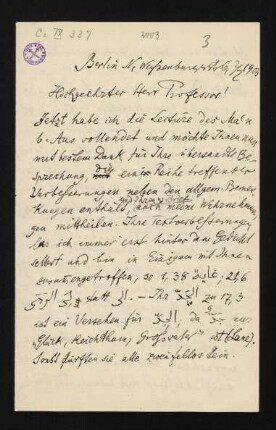 Ce IV 337
3
Berlin N, Weißenburgerstr.
Hochgeehrter Herr Professor!
Jetzt habe ich die Lectüre des
b. Aus vollendet und möchte Ihnen nun
mit bestem Dank für Ihre übersandte Be-
sprechung, die eine Reihe treffender
Verbesserungen neben den allgem. Bemer-
kungen enthält, auch meine Wahrnehmun-
gen mittheilen. Ihre Textverbesserungen
las ich immer erst hinter dem Gedicht
selbst und bin in Einigem mit Ihnen
zusammengetroffen, so 1,38 21,6
statt — Ihr zu 17,3
ist ein Versehen für da
"Glück, Reichthum, Großvater" ist (Lane).
Sonst dürften sie alle zweifellos sein.